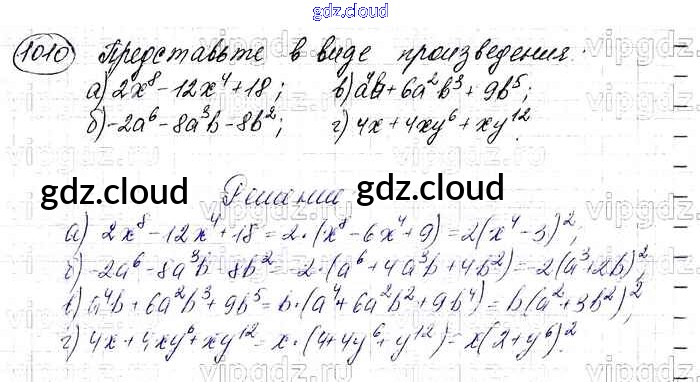 gdz.cloud
1010 Представьте в виде произведения:
а) 2x⁸ - 12x⁴ + 18; в) a⁴b + 6a²b³ + 9b⁵;
б) -2a⁶ - 8a³b - 8b²; г) 4x + 4xy⁶ + xy¹².
gdz.cloud Решение gdz.cloud
а) 2x⁸ - 12x⁴ + 18 = 2·(x⁸ - 6x⁴ + 9) = 2(x⁴ - 3)²;
б) -2a⁶ - 8a³b - 8b² = -2·(a⁶ + 4a³b + 4b²) = -2(a³ + 2b)²;
в) a⁴b + 6a²b³ + 9b⁵ = b·(a⁴ + 6a²b² + 9b⁴) = b(a² + 3b²)²;
г) 4x + 4xy⁶ + xy¹² = x·(4 + 4y⁶ + y¹²) = x(2 + y⁶)².